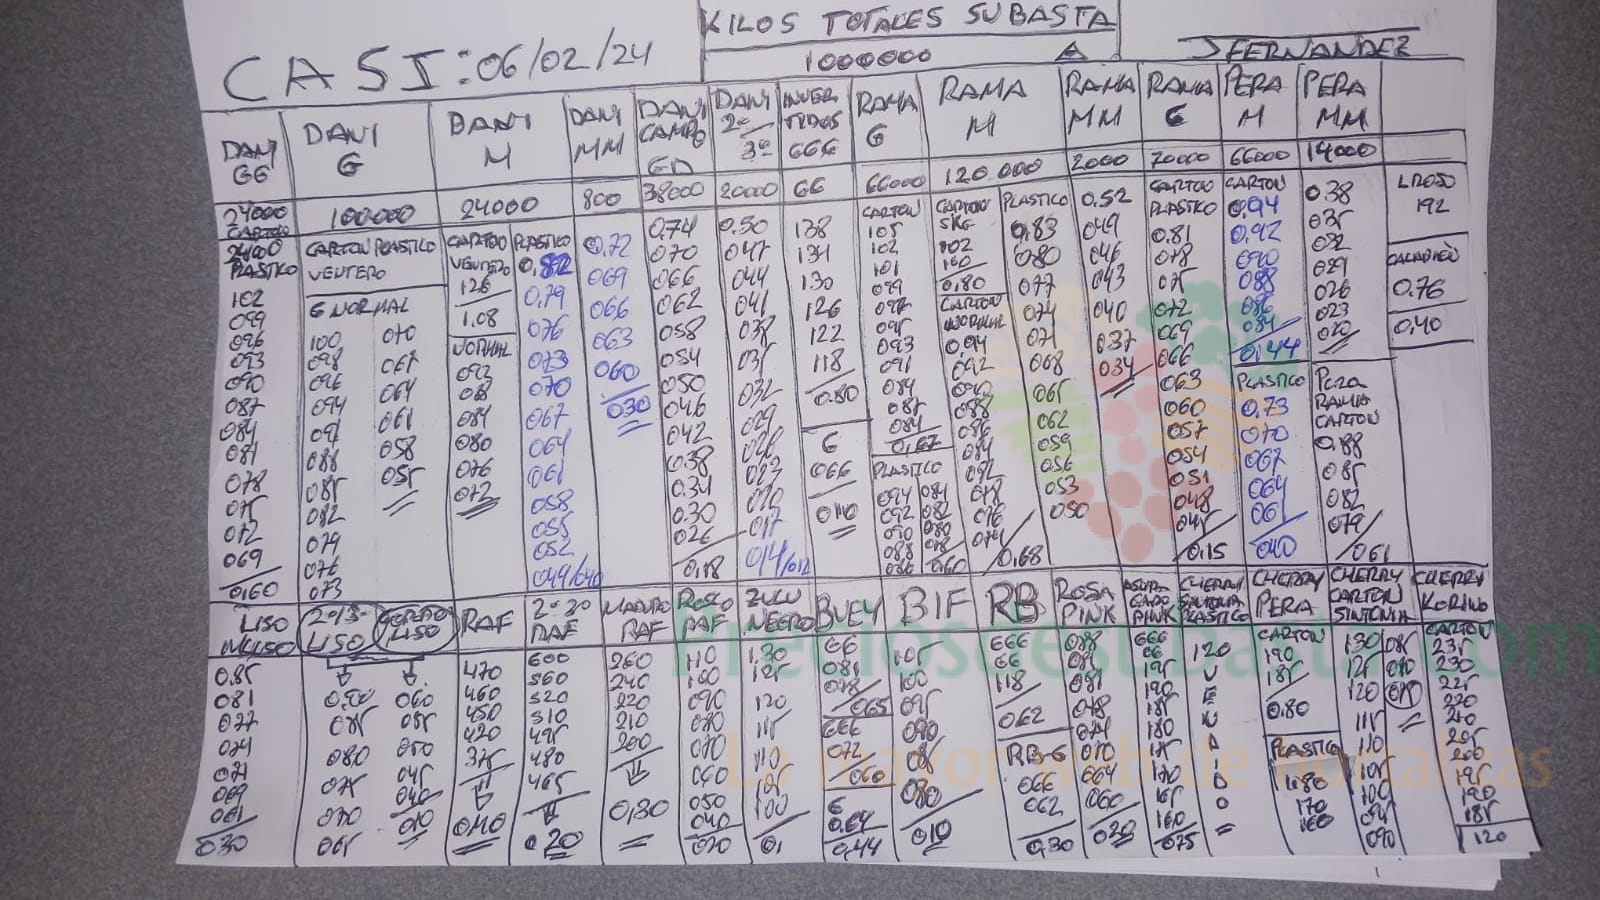 KILOS TOTALES SUBASTA
CASI: 06/02/24
1000000
JFERNANDEZ
DANI GG
DANI G
DANI M
DANI MM
DANI CAMPO
DANI 2ª 3ª
INVERTIDOS GGG
RAMA G
RAMA M
RAMA MM
RAMA G
PERA M
PERA MM
24000
100000
24000
800
38000
20000
GG
66000
120.000
2000
70000
66000
14000
CARTON
PLASTICO
102
099
096
093
090
087
084
081
078
075
072
069
0,60
CARTON PLASTICO
VENTERO
G NORMAL
100
098
096
094
091
088
085
082
079
076
073
070
067
064
061
058
055
CARTON
VENTERO
126
1.08
NORMAL
092
088
084
080
076
072
PLASTICO
0,79
076
073
070
067
064
061
058
055
052
0,72
069
066
063
060
030
0,74
070
066
062
058
054
050
046
042
0.38
0.34
0.30
026
0,18
0.50
047
044
041
038
035
032
029
026
023
020
017
014/012
138
134
130
126
122
118
0.80
G
066
CARTON
105
102
101
099
097
095
093
091
PLASTICO
CARTON
5KG
102
100
0,80
CARTON
NORMAL
0,94
092
PLASTICO
0,83
080
077
074
071
068
065
062
059
056
053
050
0,68
0,52
049
046
043
040
037
034
CARTON
PLASTICO
0,81
078
075
072
069
066
063
060
057
054
051
048
045
0,15
CARTON
0,94
0,92
090
088
086
084
0,44
PLASTICO
0,73
070
067
064
061
040
0,38
035
032
029
026
023
020
PERA
RAMA
CARTON
0,88
085
082
079
061
LROJO
192
0.76
0,40
LISO
2ª/3ª LISO
LISO
RAF
2ª 3ª RAF
MADURO RAF
ROSCO RAF
ZULU NEGRO
BUEY
BIF
RB
ROSA PINK
ASURCADO PINK
CHERRY SINTONIA PLASTICO
CHERRY PERA
CHERRY CARTON SINTONIA
CHERRY KORINO
0.85
081
077
074
071
069
061
030
0,90
085
080
075
070
065
060
055
050
045
040
010
470
460
450
420
375
040
600
560
520
510
495
480
465
0.20
260
240
220
210
200
0,30
110
100
090
080
070
060
050
040
020
1,30
125
120
115
110
105
100
GG
081
078
065
GGG
072
060
G
0,64
0,44
105
100
095
090
085
080
010
GGG
GG
118
062
RB-G
066
062
0,30
088
085
081
078
074
070
064
060
020
GGG
GG
195
190
185
180
175
170
165
160
075
120
V
E
N
D
I
D
O
CARTON
190
185
0.80
PLASTICO
1.80
170
160
130
125
120
115
110
105
100
095
090
CARTON
235
230
225
220
210
205
200
195
190
185
120
Preciosdesubasta.com
La mayor web de hortalizas